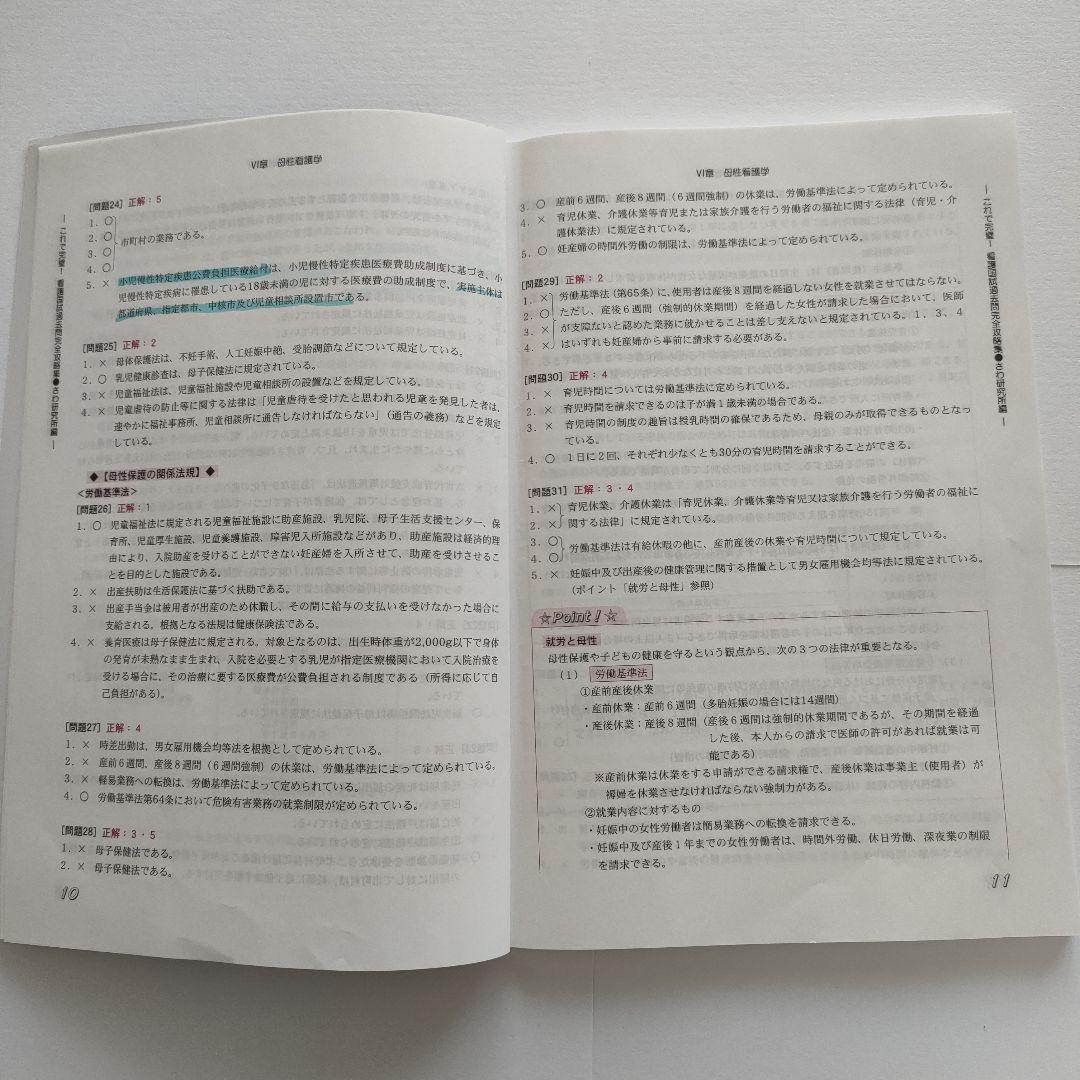 VI章 母性看護学
― これで完璧! 看護国試過去問完全攻略集●さわ研究所編 ―
[問題24] 正解:5
1. ○
2. ○
市町村の業務である。
3. ○
4. ○
5. × 小児慢性特定疾患公費負担医療給付は、小児慢性特定疾患医療費助成制度に基づき、小
児慢性特定疾病に罹患している18歳未満の児に対する医療費の助成制度で、実施主体は
都道府県、指定都市、中核市及び児童相談所設置市である。
[問題25] 正解:2
1. × 母体保護法は、不妊手術、人工妊娠中絶、受胎調節などについて規定している。
2. ○ 乳児健康診査は、母子保健法に規定されている。
3. × 児童福祉法は、児童福祉施設や児童相談所の設置などを規定している。
4. × 児童虐待の防止等に関する法律は「児童虐待を受けたと思われる児童を発見した者は、
速やかに福祉事務所、児童相談所に通告しなければならない」(通告の義務)などを規定
している。
◆【母性保護の関係法規】◆
<労働基準法>
[問題26] 正解:1
1. ○ 児童福祉法に規定される児童福祉施設に助産施設、乳児院、母子生活支援センター、保
育所、児童厚生施設、児童養護施設、障害児入所施設などがあり、助産施設は経済的理
由により、入院助産を受けることができない妊産婦を入所させて、助産を受けさせるこ
とを目的とした施設である。
2. × 出産扶助は生活保護法に基づく扶助である。
3. × 出産手当金は被用者が出産のため休職し、その間に給与の支払いを受けなかった場合に
支給される。根拠となる法規は健康保険法である。
4. × 養育医療は母子保健法に規定される。対象となるのは、出生時体重が2,000g以下で身体
の発育が未熟なまま生まれ、入院を必要とする乳児が指定医療機関において入院治療を
受ける場合に、その治療に要する医療費が公費負担される制度である(所得に応じて自
己負担がある)。
[問題27] 正解:4
1. × 時差出勤は、男女雇用機会均等法を根拠として定められている。
2. × 産前6週間、産後8週間(6週間強制)の休業は、労働基準法によって定められている。
3. × 軽易業務への転換は、労働基準法によって定められている。
4. ○ 労働基準法第64条において危険有害業務の就業制限が定められている。
[問題28] 正解:3・5
1. × 母子保健法である。
2. × 母子保健法である。
10
VI章 母性看護学
― これで完璧! 看護国試過去問完全攻略集●さわ研究所編 ―
3. ○ 産前6週間、産後8週間(6週間強制)の休業は、労働基準法によって定められている。
4. × 育児休業、介護休業等育児または家族介護を行う労働者の福祉に関する法律(育児・介
護休業法)に規定されている。
5. ○ 妊産婦の時間外労働の制限は、労働基準法によって定められている。
[問題29] 正解:2
1. × 労働基準法(第65条)に、使用者は産後8週間を経過しない女性を就業させてはならない。
2. ○ ただし、産後6週間(強制的休業期間)を経過した女性が請求した場合において、医師
3. × が支障ないと認めた業務に就かせることは差し支えないと規定されている。1、3、4
4. × はいずれも妊産婦から事前に請求する必要がある。
[問題30] 正解:4
1. × 育児時間については労働基準法に定められている。
2. × 育児時間を請求できるのは子が満1歳未満の場合である。
3. × 育児時間の制度の趣旨は授乳時間の確保であるため、母親のみが取得できるものとなっ
ている。
4. ○ 1日に2回、それぞれ少なくとも30分の育児時間を請求することができる。
[問題31] 正解:3・4
1. × 育児休業、介護休業は「育児休業、介護休業等育児又は家族介護を行う労働者の福祉に
2. × 関する法律」に規定されている。
3. ○
労働基準法は有給休暇の他に、産前産後の休業や育児時間について規定している。
4. ○
5. × 妊娠中及び出産後の健康管理に関する措置として男女雇用機会均等法に規定されている。
(ポイント「就労と母性」参照)
☆Point!☆
就労と母性
母性保護や子どもの健康を守るという観点から、次の3つの法律が重要となる。
(1) 労働基準法
①産前産後休業
・産前休業:産前6週間(多胎妊娠の場合には14週間)
・産後休業:産後8週間(産後6週間は強制的休業期間であるが、その期間を経過
した後、本人からの請求で医師の許可があれば就業は可
能である)
※産前休業は休業をする申請ができる請求権で、産後休業は事業主(使用者)が
褥婦を休業させなければならない強制力がある。
②就業内容に対するもの
・妊娠中の女性労働者は簡易業務への転換を請求できる。
・妊娠中及び産後1年までの女性労働者は、時間外労働、休日労働、深夜業の制限
を請求できる。
11